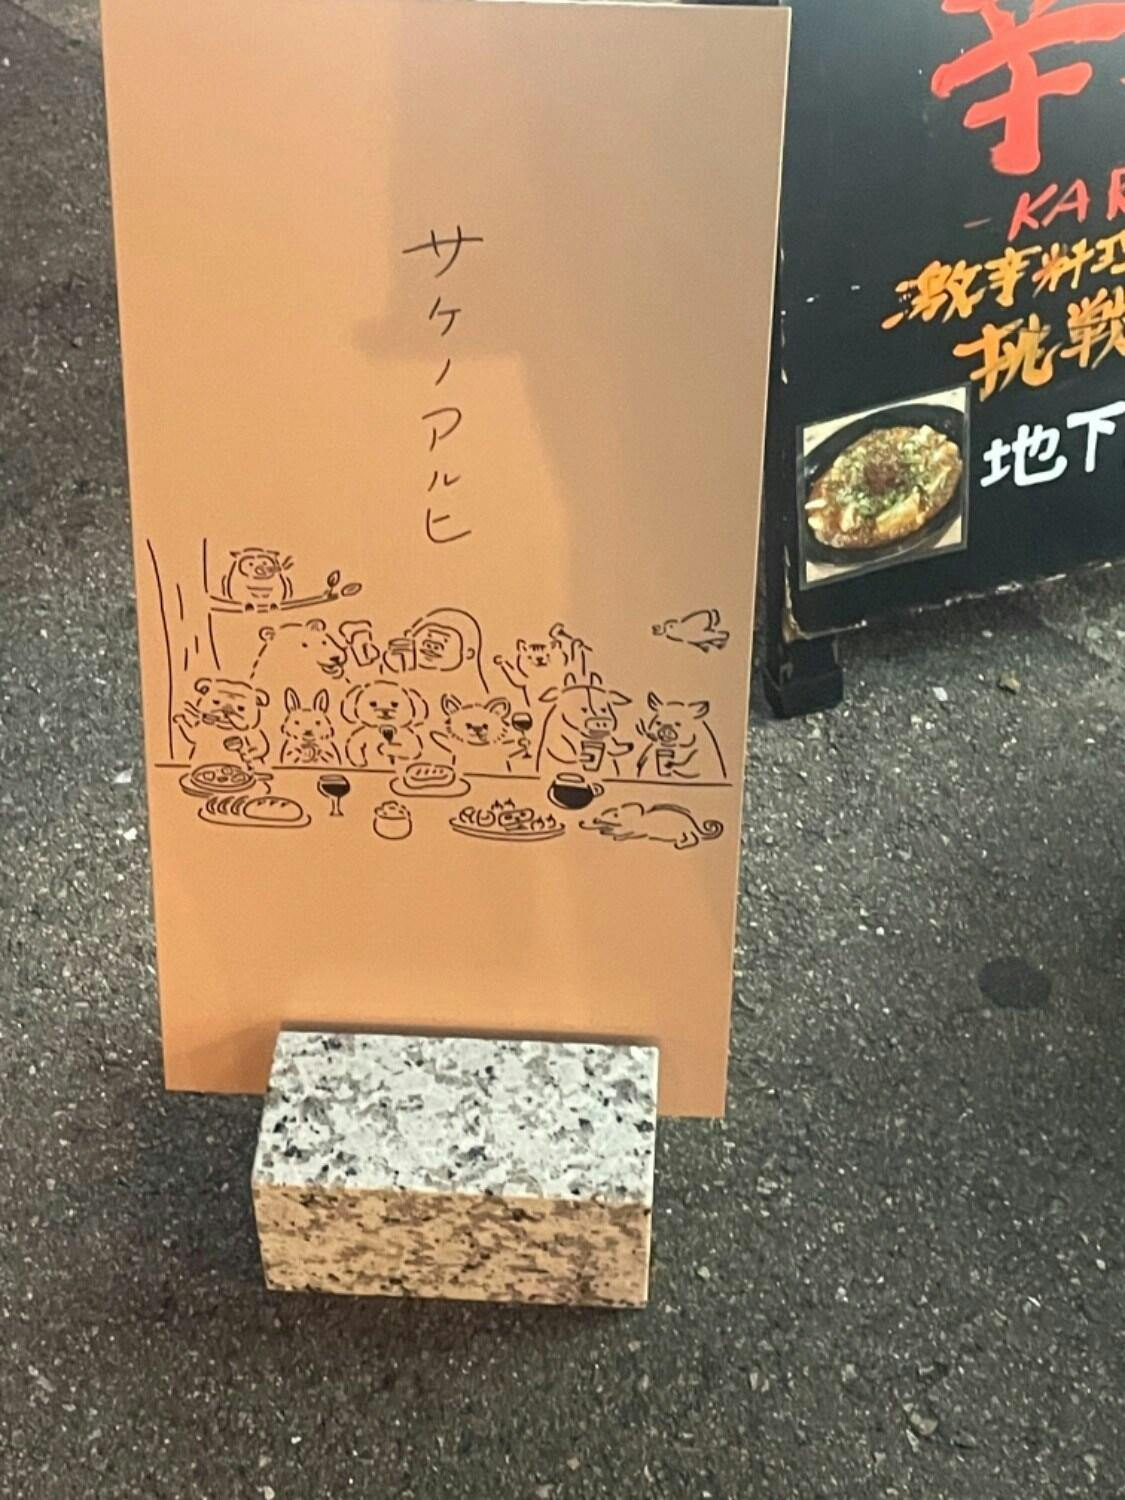 サケノアルヒ
辛
KA
激辛料理
挑戦
地下